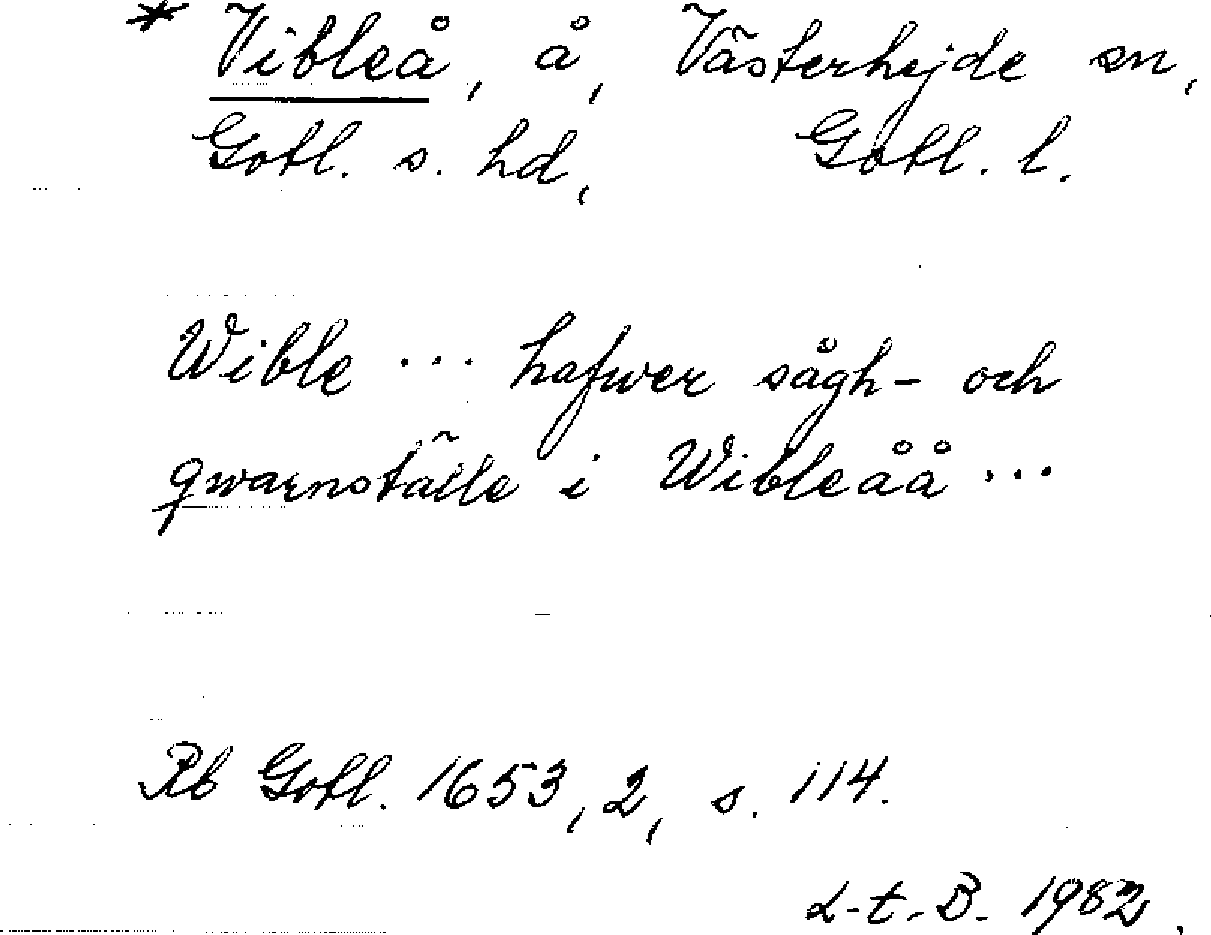 * Vibleå, å, Västerhejde sn,
Gotl. s. hd, Gotl. l.
Wible ... hafwer sågh- och
qwarnställe i Wibleåå ...
Rb Gotl. 1653, 2, s. 114.
L-t. B. 1982.